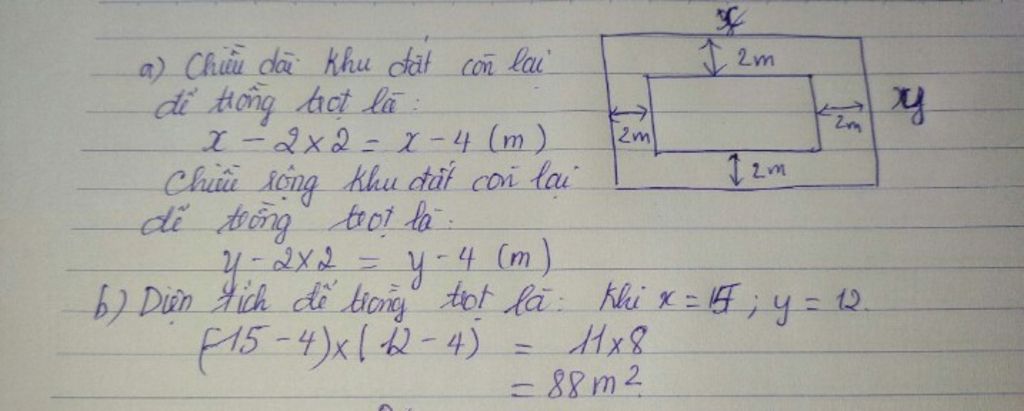 x
2m
a) Chiều dài khu đất còn lại
để trồng trọt là:
2m
2m
y
x - 2 x 2 = x - 4 (m)
2m
Chiều rộng khu đất còn lại
để trồng trọt là:
y - 2 x 2 = y - 4 (m)
b) Diện tích để trồng trọt là: khi x = 15; y = 12.
(15 - 4) x (12 - 4) = 11 x 8
= 88 m²